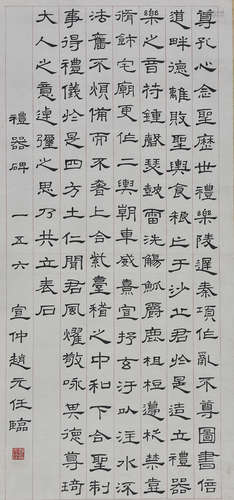 尊孔心念聖歷世禮樂陵遲秦項作亂不尊圖書倍
道畔德離敗聖輿食糧亡于沙丘君於是造立禮器
樂之音符鍾磬瑟鼓雷洗觴觚爵鹿柤梪籩柉禁壺
脩飾宅廟更作二輿朝車威熹宣抒玄汙以注水流
法舊不煩備而不奢上合紫臺稽之中和下合聖制
事得禮儀於是四方士仁聞君風耀敬咏其德尊琦
大人之意逴彌之思乃共立表石
禮器碑 一五六 宣仲趙元任臨